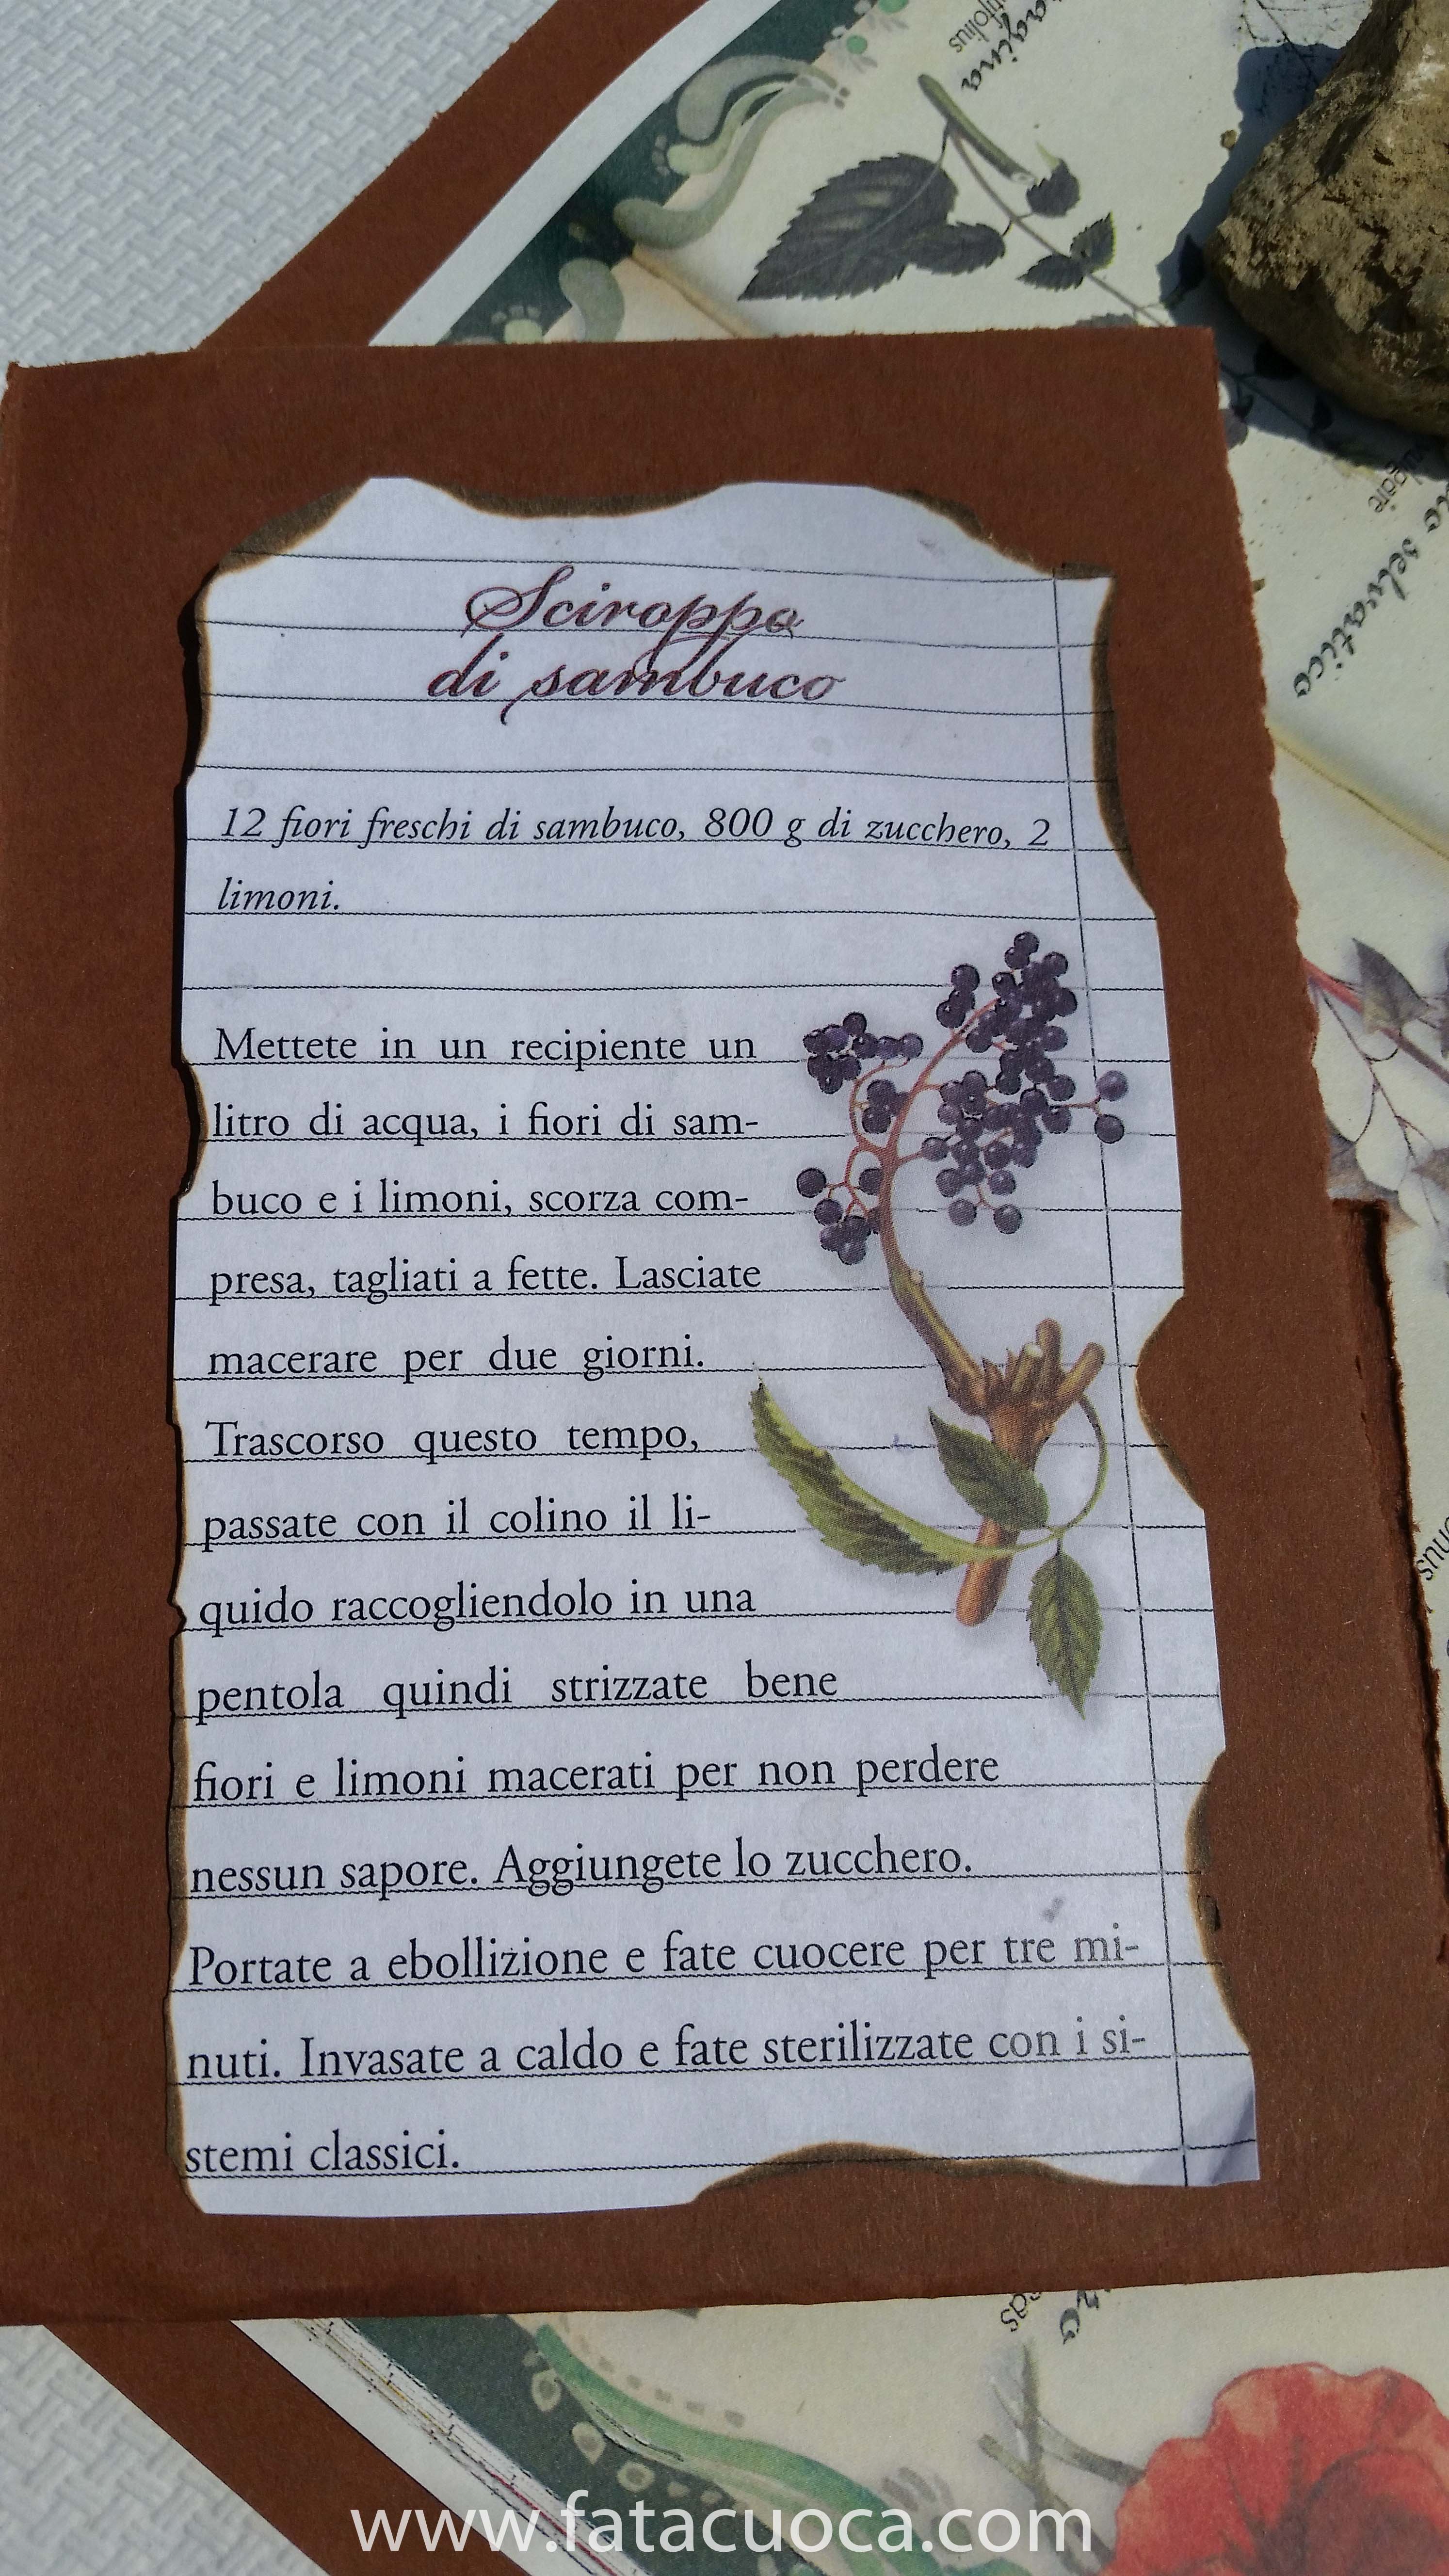 agina
tifolius
selvatico
Sciroppo
di sambuco
12 fiori freschi di sambuco, 800 g di zucchero, 2
limoni.
Mettete in un recipiente un
litro di acqua, i fiori di sam-
buco e i limoni, scorza com-
presa, tagliati a fette. Lasciate
macerare per due giorni.
Trascorso questo tempo,
passate con il colino il li-
quido raccogliendolo in una
pentola quindi strizzate bene
fiori e limoni macerati per non perdere
nessun sapore. Aggiungete lo zucchero.
Portate a ebollizione e fate cuocere per tre mi-
nuti. Invasate a caldo e fate sterilizzate con i si-
stemi classici.
www.fatacuoca.com